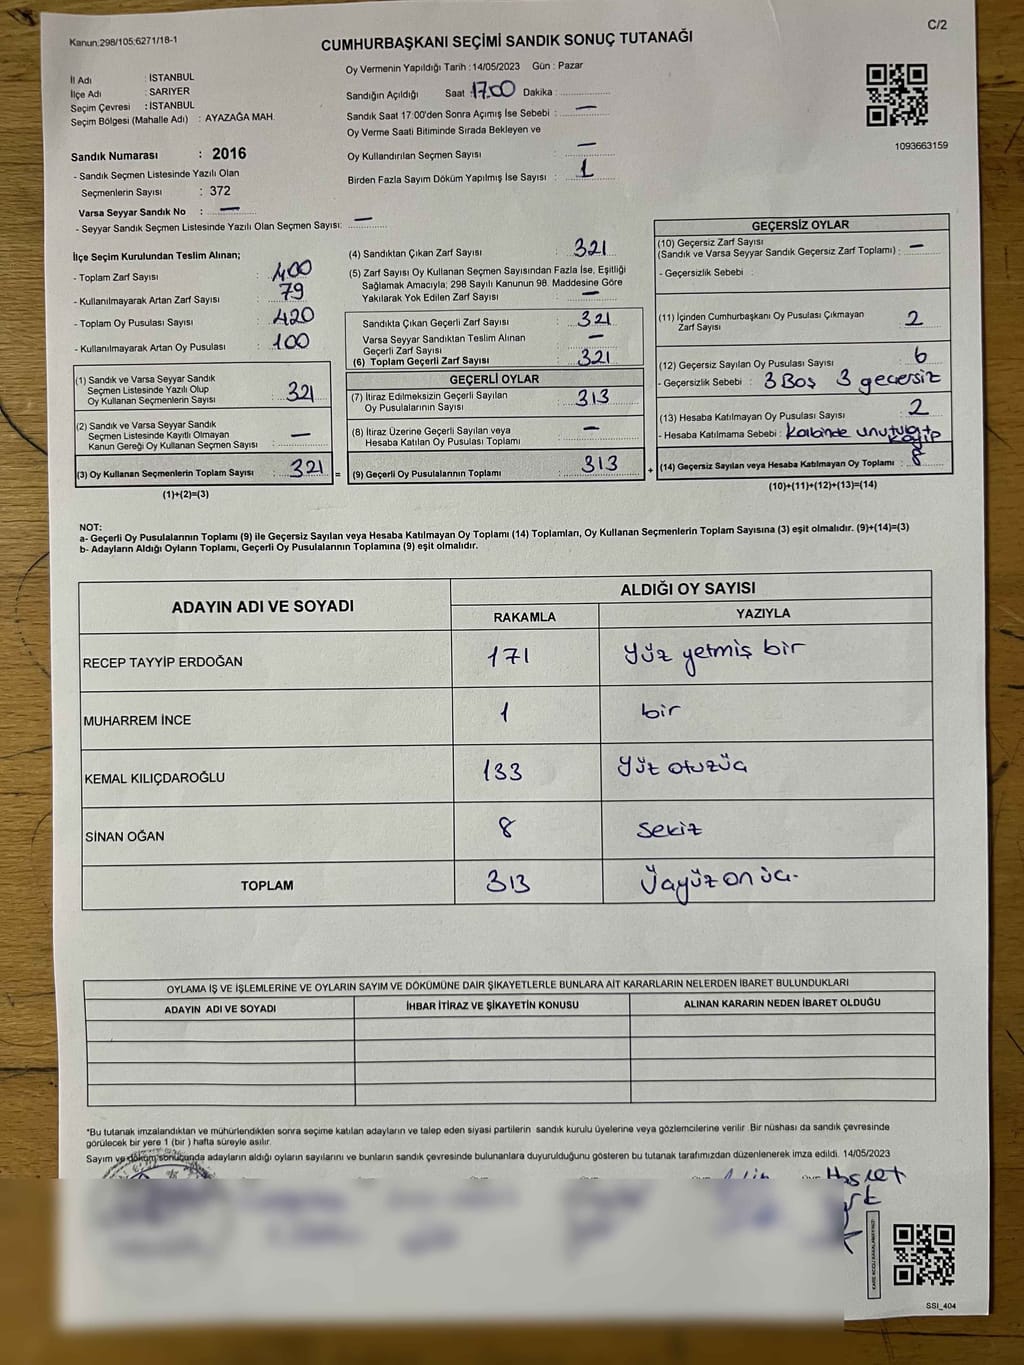 Kanun:298/105;6271/18-1
C/2
CUMHURBAŞKANI SEÇİMİ SANDIK SONUÇ TUTANAĞI
İl Adı : İSTANBUL
İlçe Adı : SARIYER
Seçim Çevresi : İSTANBUL
Seçim Bölgesi (Mahalle Adı) : AYAZAĞA MAH.
Oy Vermenin Yapıldığı Tarih : 14/05/2023 Gün : Pazar
Sandığın Açıldığı Saat : 17.00 Dakika :
Sandık Saat 17:00'den Sonra Açımış İse Sebebi : —
Oy Verme Saati Bitiminde Sırada Bekleyen ve
Oy Kullandırılan Seçmen Sayısı : —
Birden Fazla Sayım Döküm Yapılmış İse Sayısı : 1
1093663159
Sandık Numarası : 2016
- Sandık Seçmen Listesinde Yazılı Olan
Seçmenlerin Sayısı : 372
Varsa Seyyar Sandık No : —
- Seyyar Sandık Seçmen Listesinde Yazılı Olan Seçmen Sayısı: —
İlçe Seçim Kurulundan Teslim Alınan;
- Toplam Zarf Sayısı : 400
- Kullanılmayarak Artan Zarf Sayısı : 79
- Toplam Oy Pusulası Sayısı : 420
- Kullanılmayarak Artan Oy Pusulası : 100
(1) Sandık ve Varsa Seyyar Sandık
Seçmen Listesinde Yazılı Olup
Oy Kullanan Seçmenlerin Sayısı : 321
(2) Sandık ve Varsa Seyyar Sandık
Seçmen Listesinde Kayıtlı Olmayan
Kanun Gereği Oy Kullanan Seçmen Sayısı : —
(3) Oy Kullanan Seçmenlerin Toplam Sayısı : 321 =
(1)+(2)=(3)
(4) Sandıktan Çıkan Zarf Sayısı : 321
(5) Zarf Sayısı Oy Kullanan Seçmen Sayısından Fazla İse, Eşitliği
Sağlamak Amacıyla; 298 Sayılı Kanunun 98. Maddesine Göre
Yakılarak Yok Edilen Zarf Sayısı : —
Sandıkta Çıkan Geçerli Zarf Sayısı : 321
Varsa Seyyar Sandıktan Teslim Alınan
Geçerli Zarf Sayısı : —
(6) Toplam Geçerli Zarf Sayısı : 321
GEÇERLİ OYLAR
(7) İtiraz Edilmeksizin Geçerli Sayılan
Oy Pusulalarının Sayısı : 313
(8) İtiraz Üzerine Geçerli Sayılan veya
Hesaba Katılan Oy Pusulası Toplamı : —
(9) Geçerli Oy Pusulalarının Toplamı : 313 +
GEÇERSİZ OYLAR
(10) Geçersiz Zarf Sayısı
(Sandık ve Varsa Seyyar Sandık Geçersiz Zarf Toplamı) : —
- Geçersizlik Sebebi :
(11) İçinden Cumhurbaşkanı Oy Pusulası Çıkmayan
Zarf Sayısı : 2
(12) Geçersiz Sayılan Oy Pusulası Sayısı : 6
- Geçersizlik Sebebi : 3 Boş 3 geçersiz
(13) Hesaba Katılmayan Oy Pusulası Sayısı : 2
- Hesaba Katılmama Sebebi :
(14) Geçersiz Sayılan veya Hesaba Katılmayan Oy Toplamı : 8
(10)+(11)+(12)+(13)=(14)
NOT:
a- Geçerli Oy Pusulalarının Toplamı (9) ile Geçersiz Sayılan veya Hesaba Katılmayan Oy Toplamı (14) Toplamları, Oy Kullanan Seçmenlerin Toplam Sayısına (3) eşit olmalıdır. (9)+(14)=(3)
b- Adayların Aldığı Oyların Toplamı, Geçerli Oy Pusulalarının Toplamına (9) eşit olmalıdır.
ADAYIN ADI VE SOYADI ALDIĞI OY SAYISI
RAKAMLA YAZIYLA
RECEP TAYYİP ERDOĞAN 171 Yüz yetmiş bir
MUHARREM İNCE 1 bir
KEMAL KILIÇDAROĞLU 133 Yüz otuzüç
SİNAN OĞAN 8 Sekiz
TOPLAM 313 Üçyüz on üç.
OYLAMA İŞ VE İŞLEMLERİNE VE OYLARIN SAYIM VE DÖKÜMÜNE DAİR ŞİKAYETLERLE BUNLARA AİT KARARLARIN NELERDEN İBARET BULUNDUKLARI
ADAYIN ADI VE SOYADI İHBAR İTİRAZ VE ŞİKAYETİN KONUSU ALINAN KARARIN NEDEN İBARET OLDUĞU
*Bu tutanak imzalandıktan ve mühürlendikten sonra seçime katılan adayların ve talep eden siyasi partilerin sandık kurulu üyelerine veya gözlemcilerine verilir. Bir nüshası da sandık çevresinde
görülecek bir yere 1 (bir ) hafta süreyle asılır.
Sayım ve döküm sonucunda adayların aldığı oyların sayılarını ve bunların sandık çevresinde bulunanlara duyurulduğunu gösteren bu tutanak tarafımızdan düzenlenerek imza edildi. 14/05/2023
SSİ_404